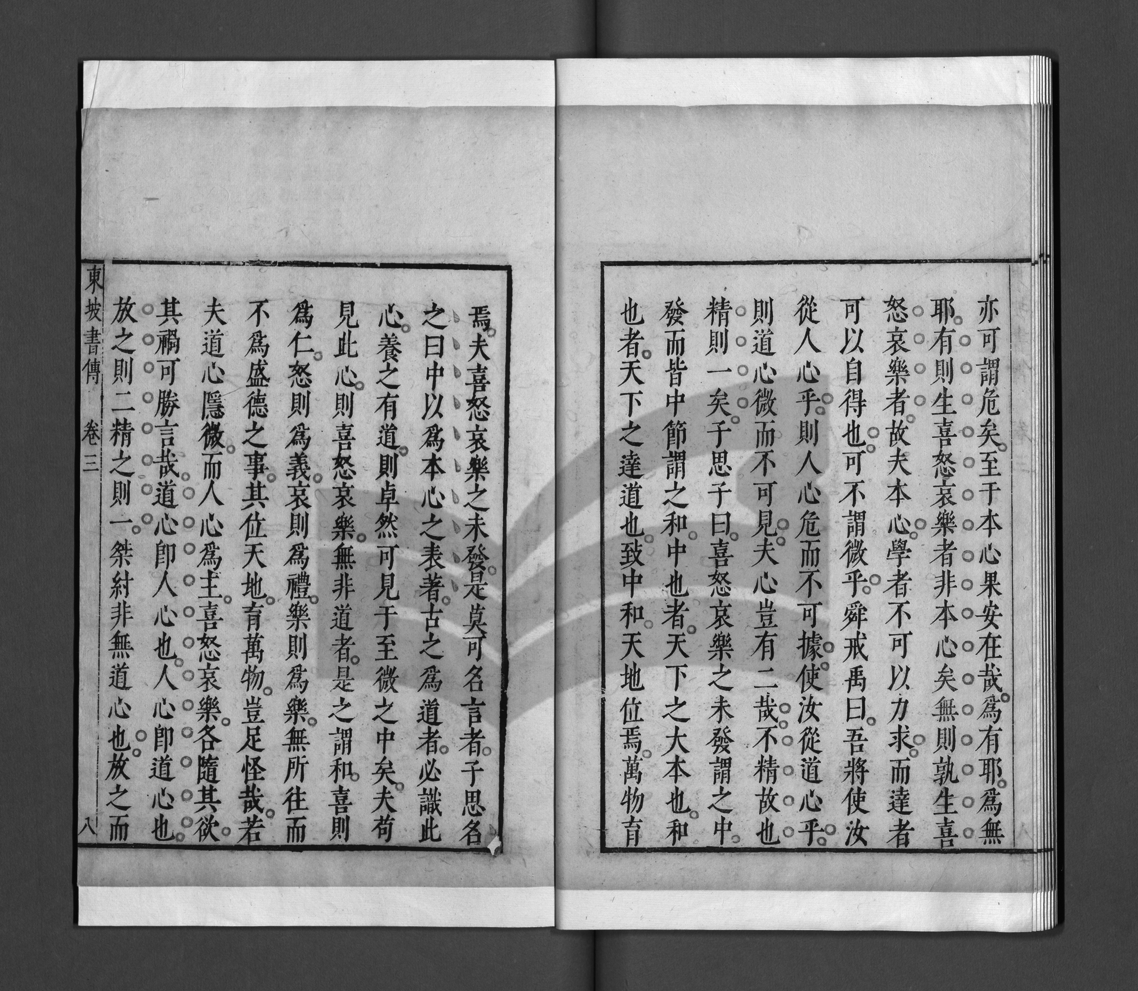 亦可謂危矣至于本心果安在哉爲有耶爲無
耶有則生喜怒哀樂者非本心矣無則孰生喜
怒哀樂者故夫本心學者不可以力求而達者
可以自得也可不謂微乎舜戒禹曰吾將使汝
從人心乎則人心危而不可據使汝從道心乎
則道心微而不可見夫心豈有二哉不精故也
精則一矣子思子曰喜怒哀樂之未發謂之中
發而皆中節謂之和中也者天下之大本也和
也者天下之達道也致中和天地位焉萬物育
焉夫喜怒哀樂之未發是莫可名言者子思名
之曰中以爲本心之表著古之爲道者必識此
心養之有道則卓然可見于至微之中矣夫苟
見此心則喜怒哀樂無非道者是之謂和喜則
爲仁怒則爲義哀則爲禮樂則爲樂無所往而
不爲盛德之事其位天地育萬物豈足怪哉若
夫道心隱微而人心爲主喜怒哀樂各隨其欲
其禍可勝言哉道心卽人心也人心卽道心也
放之則二精之則一桀紂非無道心也放之而
東坡書傳 卷三 八